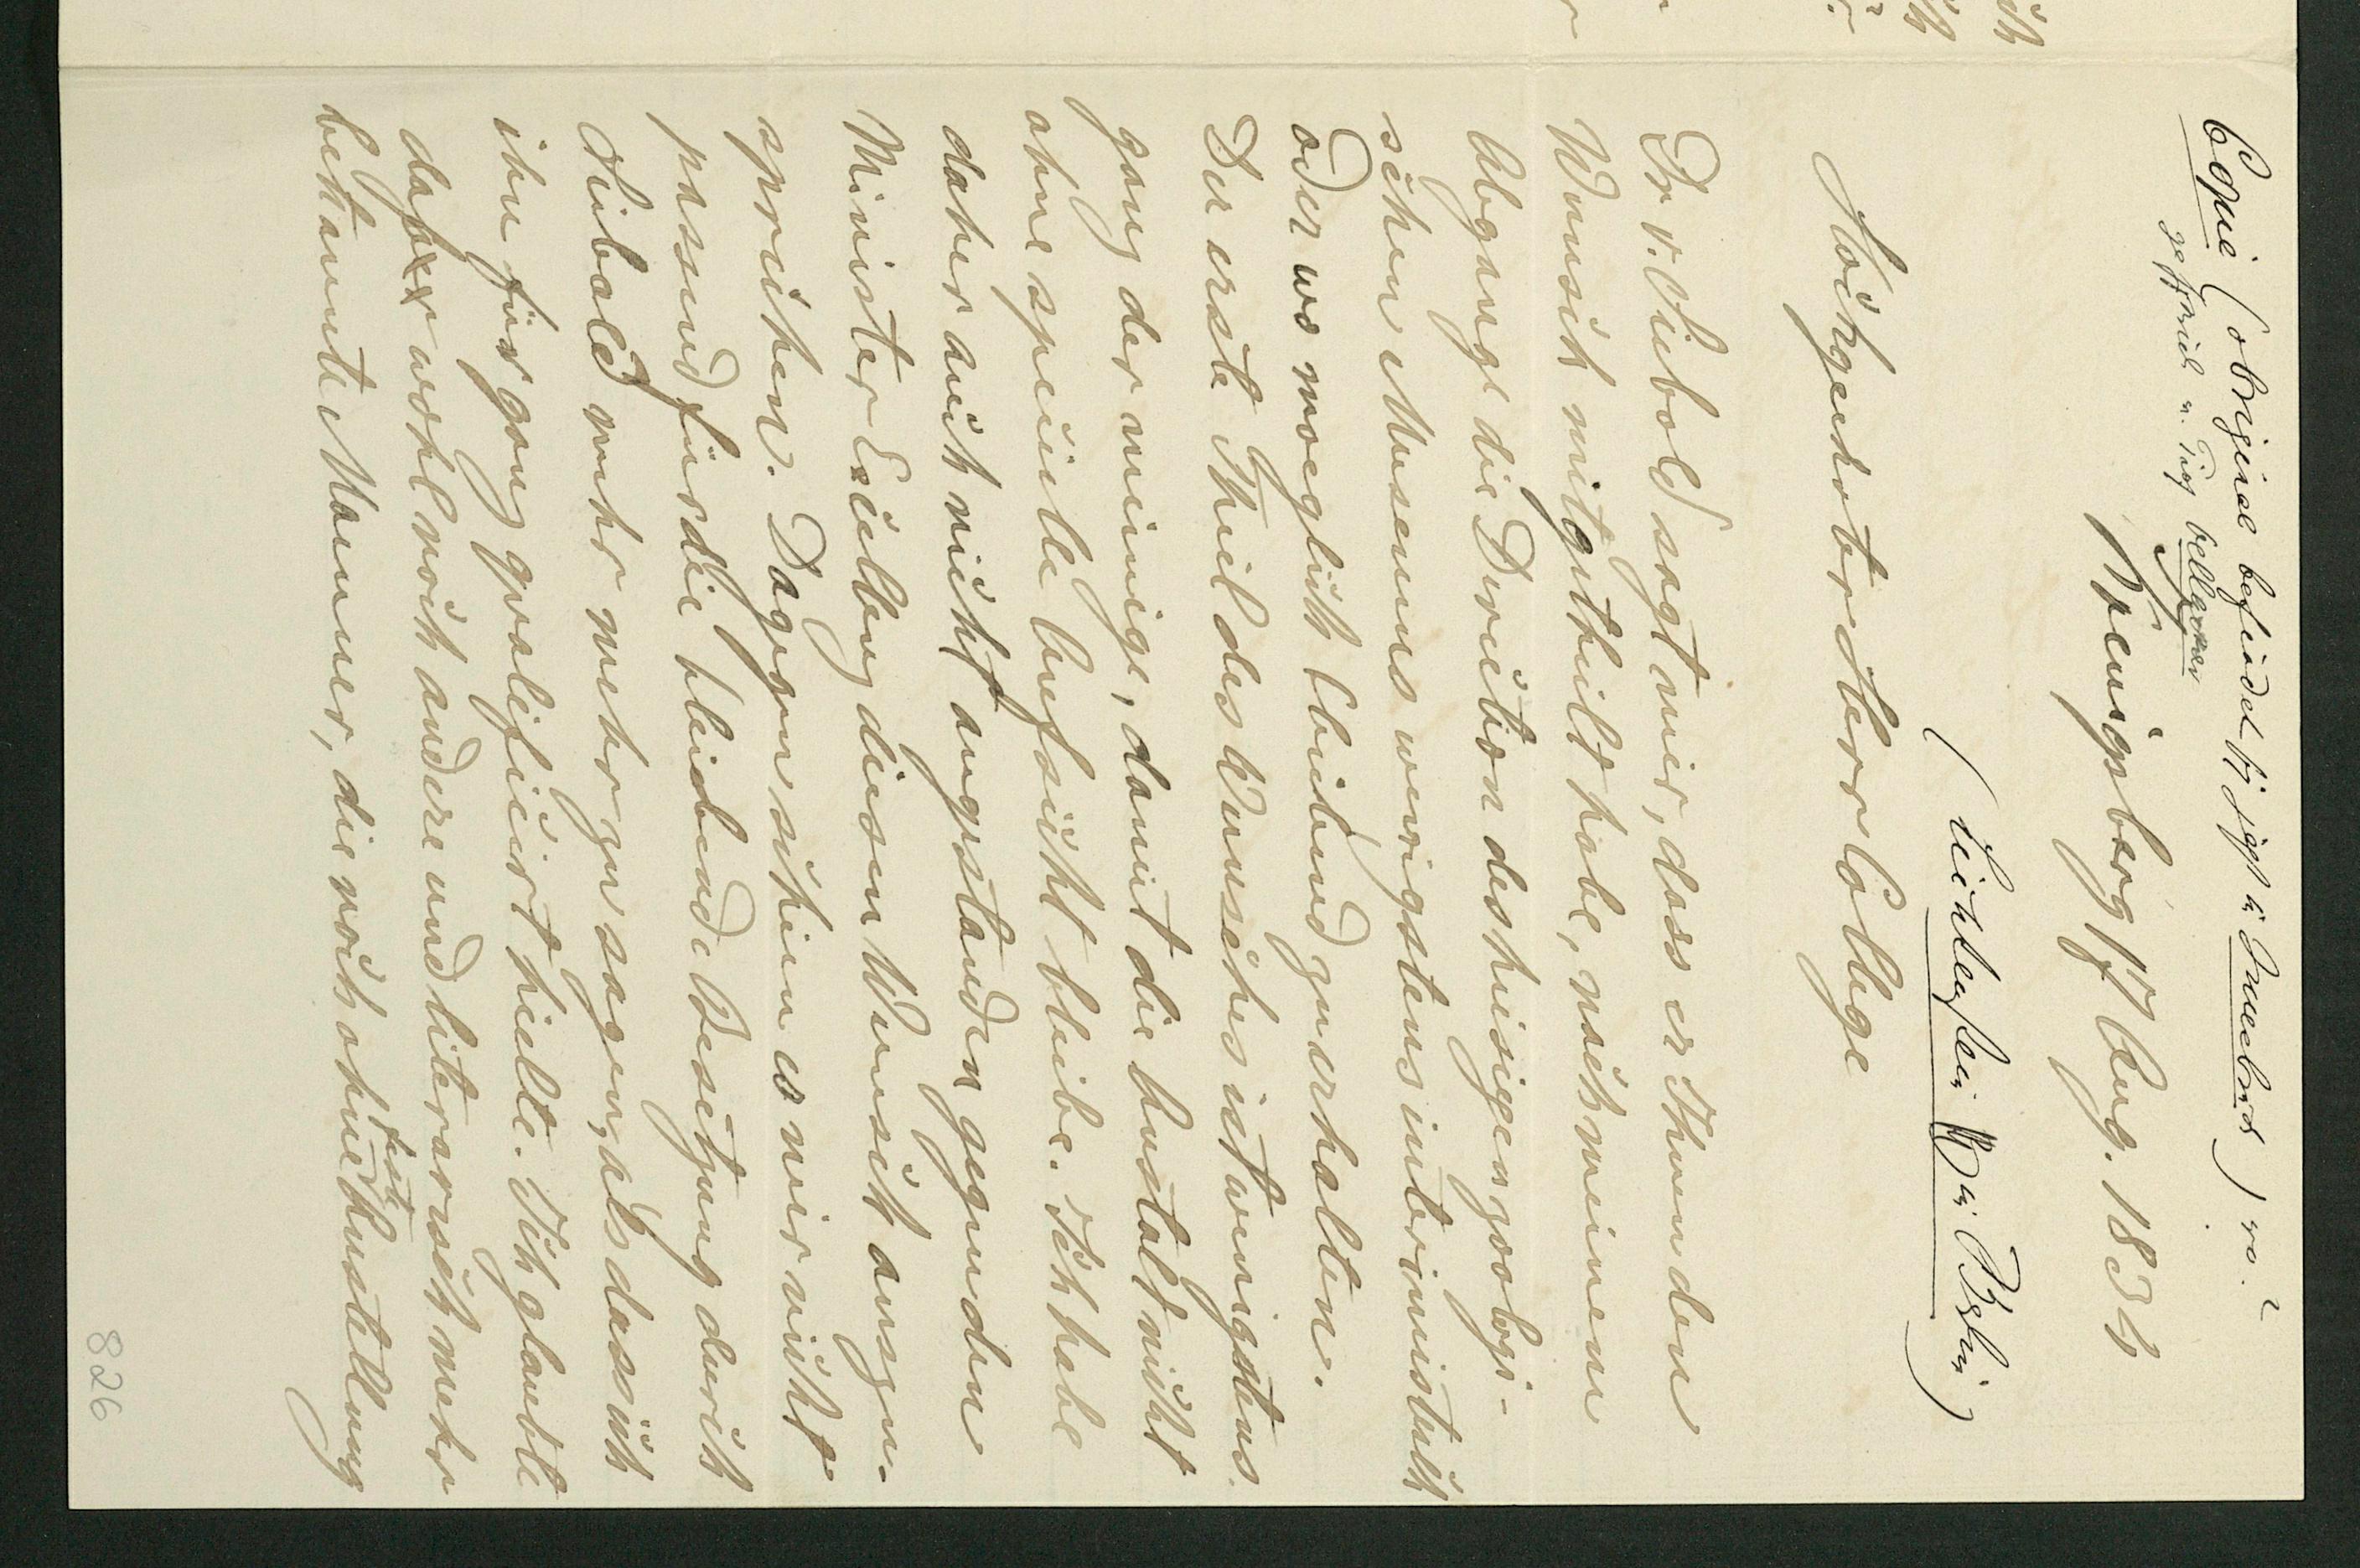 Copie (Original befindet sich jetzt in Innsbruck) v.
Koenigsberg 17 Aug. 1834
(Lichtenstein in Berlin)
Hochgeehrter Herr College
Dr v. Siebold sagt mir, dass er Ihnen den
Wunsch mitgetheilt habe, nach meinem
Abgange die Direction des hiesigen zoologi-
schen Museums wenigstens interimistisch
oder wo moeglich bleibend zu erhalten.
Der erste Theil des Wunsches ist wenigstens
ganz der meinige, damit die Anstalt nicht
ohne specielle Aufsicht bleibe. Ich habe
daher auch nicht angestanden gegen den
Minister Excellenz diesen Wunsch auszu-
sprechen. Dagegen schien es mir nicht
passend für die bleibende Besetzung durch
Siebald mehr mehr zu sagen, als dass ich
ihn für ganz qualificirt hielte. Ich glaubte
dass wohl noch andere und literarisch mehr
bekannte Männer, die noch ohne feste Anstellung
826